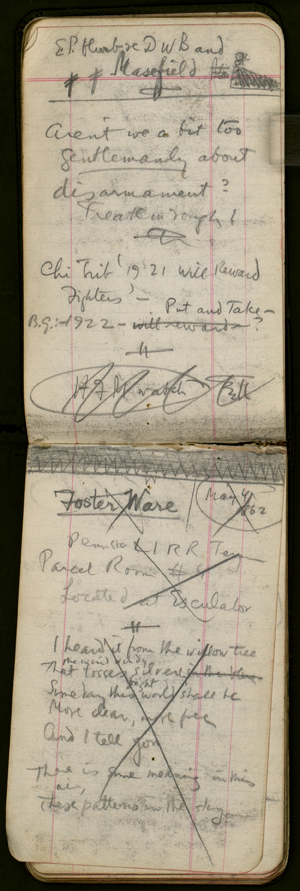 E.P. D W B and
Masefield
Aren't we a bit too
gentlemanly about
disarmament?
Treat 'em rough!
Chi Trib '1921 will Reward
Fighters' –
Put and Take –
B.G.:– 1922 – will reward ?
watch
Foster Ware
May 4
R R
Parcel Room
Located at Esculator
I heard it from the willow tree
the wind
That tosses silver in the
bright
Some day this world shall be
More clean, more free
And I tell you
There is some meaning in this
air,
These patterns in the sky